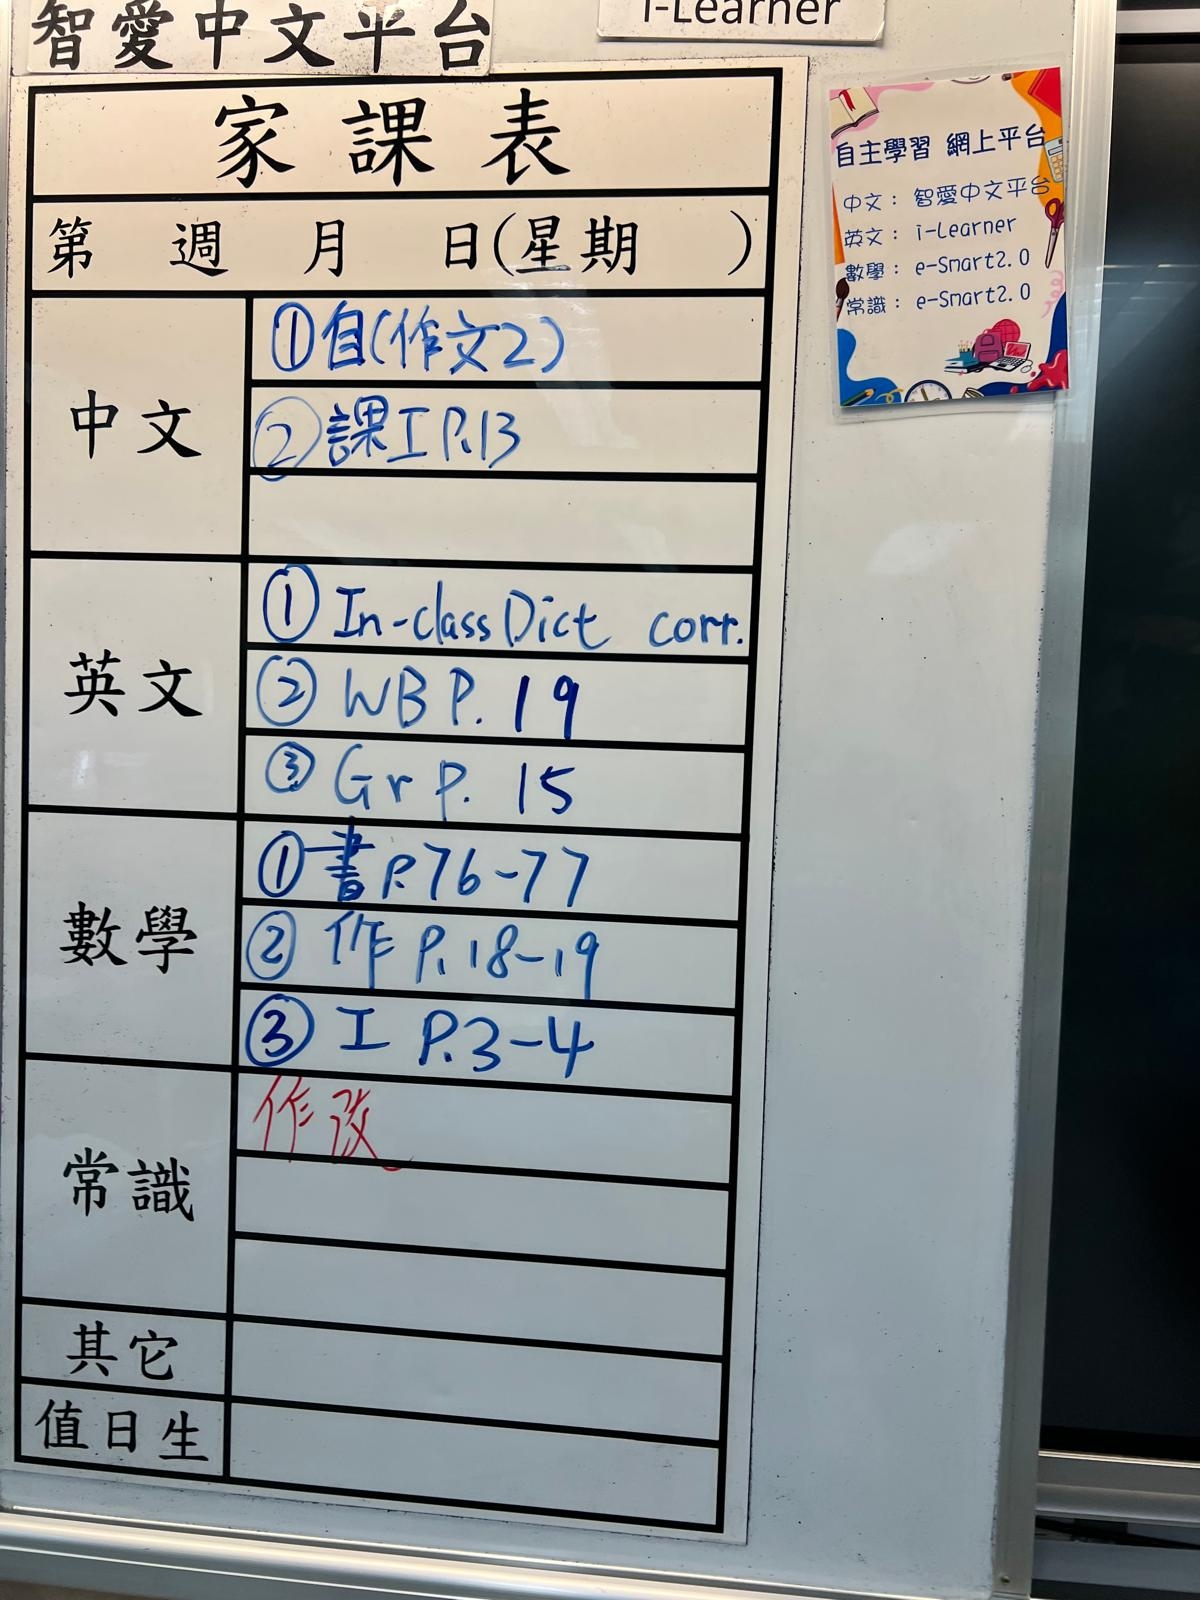 智愛中文平台
i-Learner
家課表
第 週 月 日(星期 )
中文
①自(作文2)
②課工P.13
英文
①In-class Dict corr.
②WB P. 19
③Gr P. 15
數學
①書P.76-77
②作P.18-19
③工 P.3-4
常識
作改
其它
值日生
自主學習 網上平台
中文： 智愛中文平台
英文： i-Learner
數學： e-Smart2.0
常識： e-Smart2.0